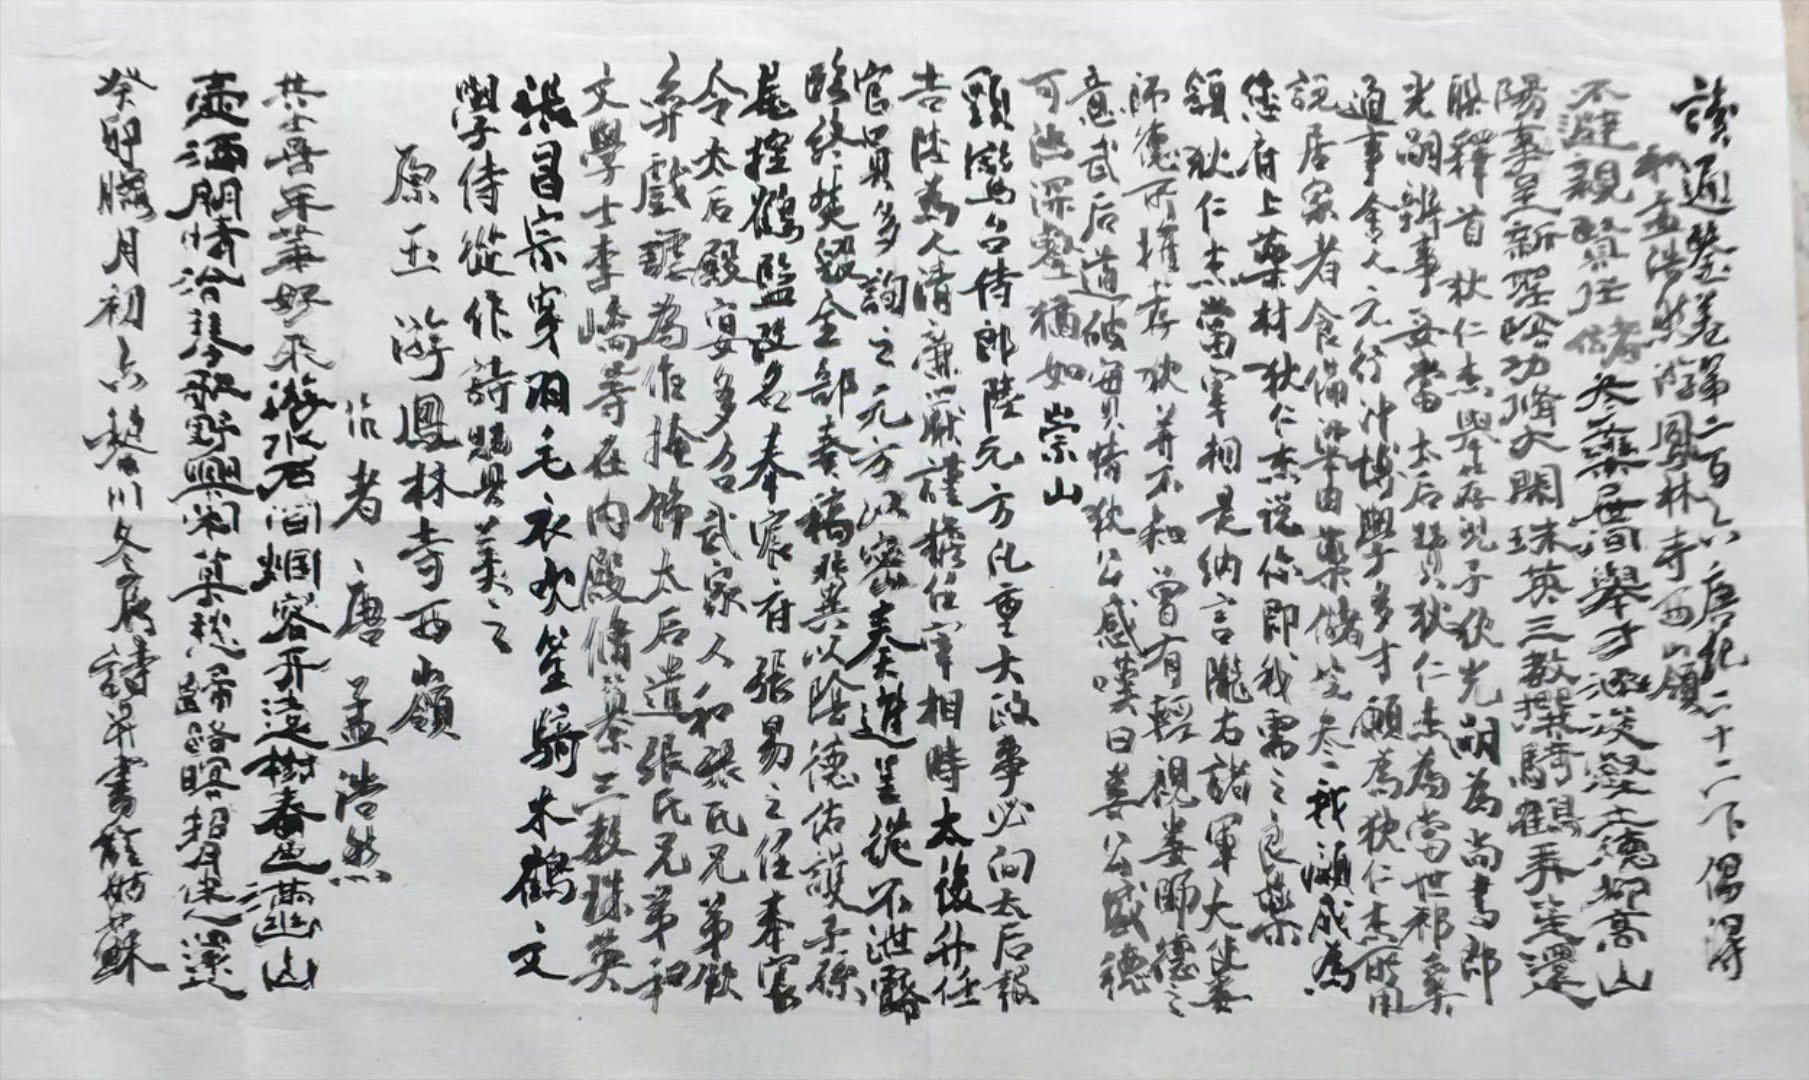 讀通鑒卷第二百六唐紀二十二下偶得
和孟浩然游鳳林寺西山嶺
不避親賢任儲參藥世間舉才深淺壑土德都高山
陽奉呈新聖公功脩文開珠英三教撰騎鶴弄笙還
臊釋首狄仁杰舉荐兒子狄光嗣為尚書郎
光嗣辦事妥當太后贊狄仁杰為當世祁奚
通事舍人元行沖博學多才願為狄仁杰所用
說居家者食備干肉藥儲芝參我願成為
您府上藥材狄仁杰說你即我需之良藥
領狄仁杰當宰相是納言隴右諸軍大使婁
師德所推荐狄并不知曾有輕視婁師德之
意武后道破實情狄公感嘆曰婁公盛德
可謂深壑猶如崇山
顥鸞台侍郎陸元方凡重大政事必向太后報
告陸為人清廉嚴謹擔任宰相時太後升任
官員多詢之元方以密奏進呈從不泄露
臨終焚毀全部奏稿非異以陰德佑護子孫
尾控鶴監改名奉宸府張易之任奉宸
令太后殿宴多召武家人和張氏兄弟飲
弈戲謔為作掩飾太后遣張氏兄弟和
文學士李嶠等在內殿脩纂三教珠英
張昌宗穿羽毛衣吹笙騎木鶴文
學侍從作詩賦其美之
原玉 游鳳林寺西山嶺
作者 唐 孟浩然
共喜年華好來游水石間烟容开遠樹春色滿幽山
壺酒朋情洽琴歌野興閑莫愁歸路暝招月伴人還
癸卯臘月初六楚川冬辰詩并書於姑蘇